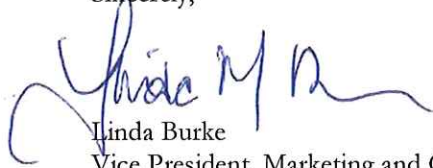 Sincerely,
Linda M B
Linda Burke
Vice President, Marketing and C